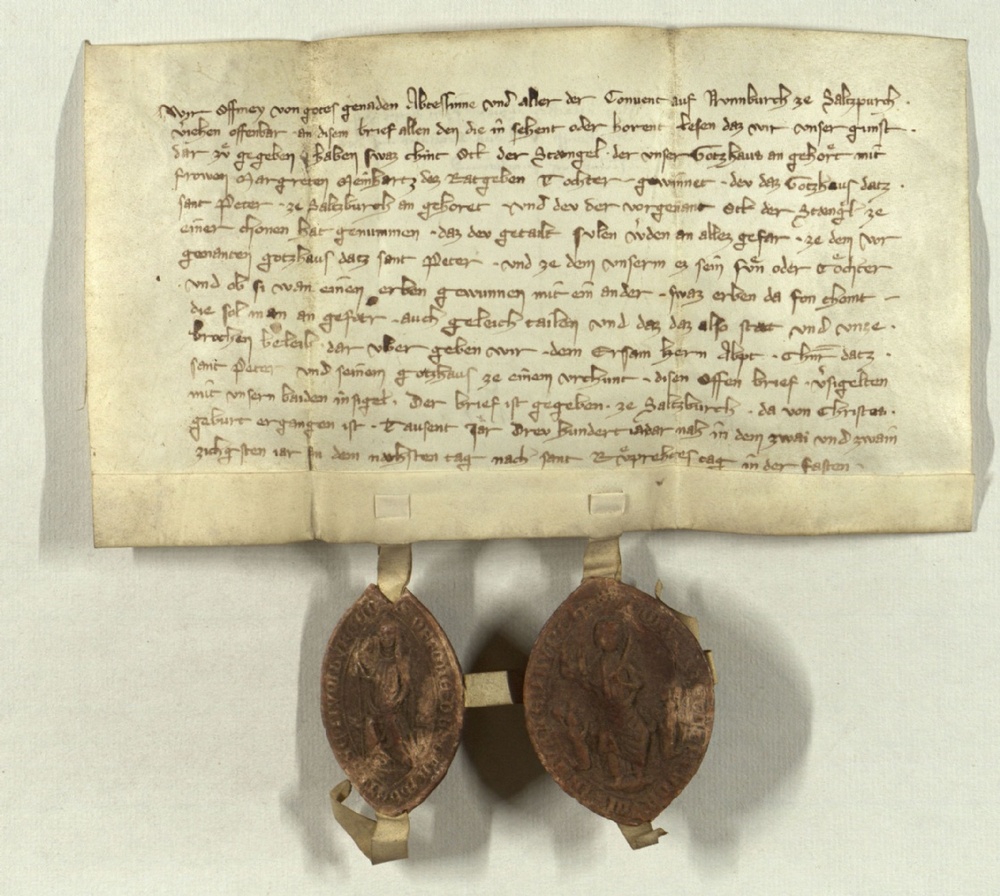 Wir Offmey von gotes genaden Abtessinne vnd aller der Conuent auf Nvnnburch ze Saltzpurch ·
v̾iehen offenbar · an disem brief allen den die in sehent oder horent lesen daz wir vnser gunst ·
dar zv̊ gegeben haben swaz chint Ott der Stængel · der vnser Gotzhaus an gehoͤrt mit
frowen Margreten Meinhartz des Ratgeben Tochter · gewinnet · dev daz Gotzhaus datz ·
sant Peter · ze Saltzburch an gehoret · vnd dev der vorgenant Ott der Stængl ze
einer chonen hat genummen · daz dev getailt svlen w̾den an allez gefær · ze dem vor
genanten gotzhaus datz sant Peter · vnd ze dem vnserm ez sein svͤn oder Toͤchter
· vnd ob si wan einen erben gewunnen mit ein ander · swaz erben da fon chomt –
die sol man an gefær · auch geleich tailen vnd daz daz also stæt vnd vnze ·
brochen beleib · dar vber geben wir · dem Ersam hern Abpt · datz ·
sant Peter vnd seinem gotzhaus ze einem vrchunt · disen Offen brief · v̾sigelten
mit vnsern baiden insigel · Der brief ist gegeben · ze Saltzburch · da von Christes ·
geburt ergangen ist · Tausent Jar Drev hundert iar dar nah in dem zwai vnd zwain
zichgsten iar an dem næhsten tag nach sant Rvͤprehtes tag in der fasten ·